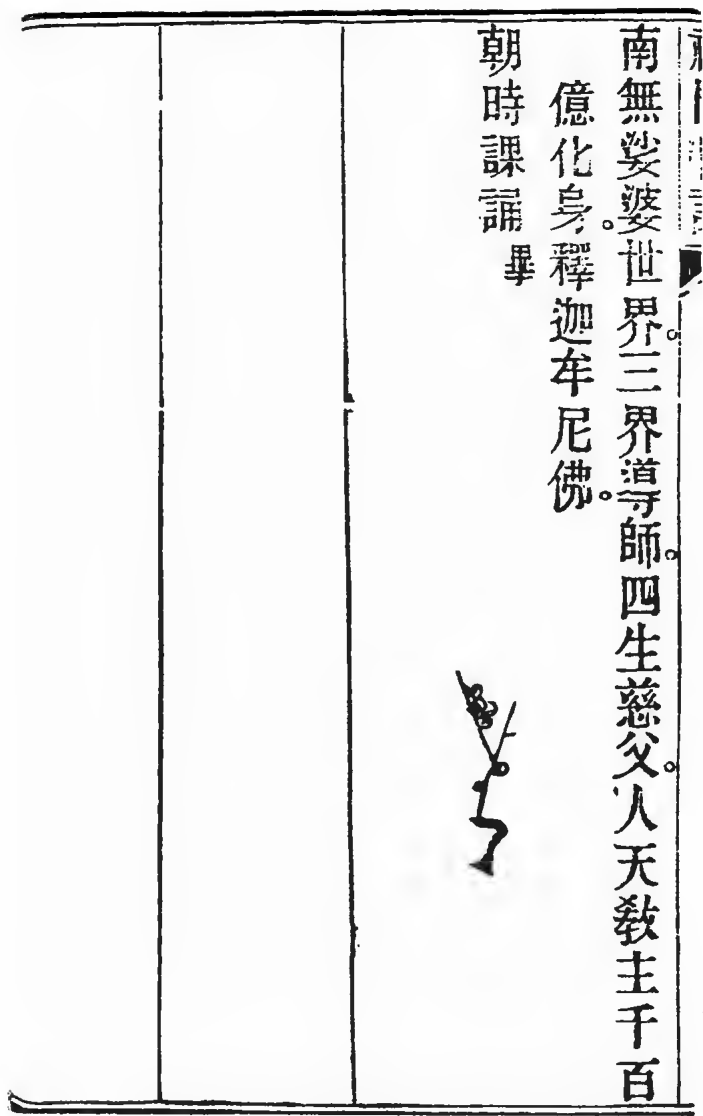 南無娑婆世界。三界導師。四生慈父。人天教主千百
億化身。釋迦牟尼佛。
朝時課誦畢